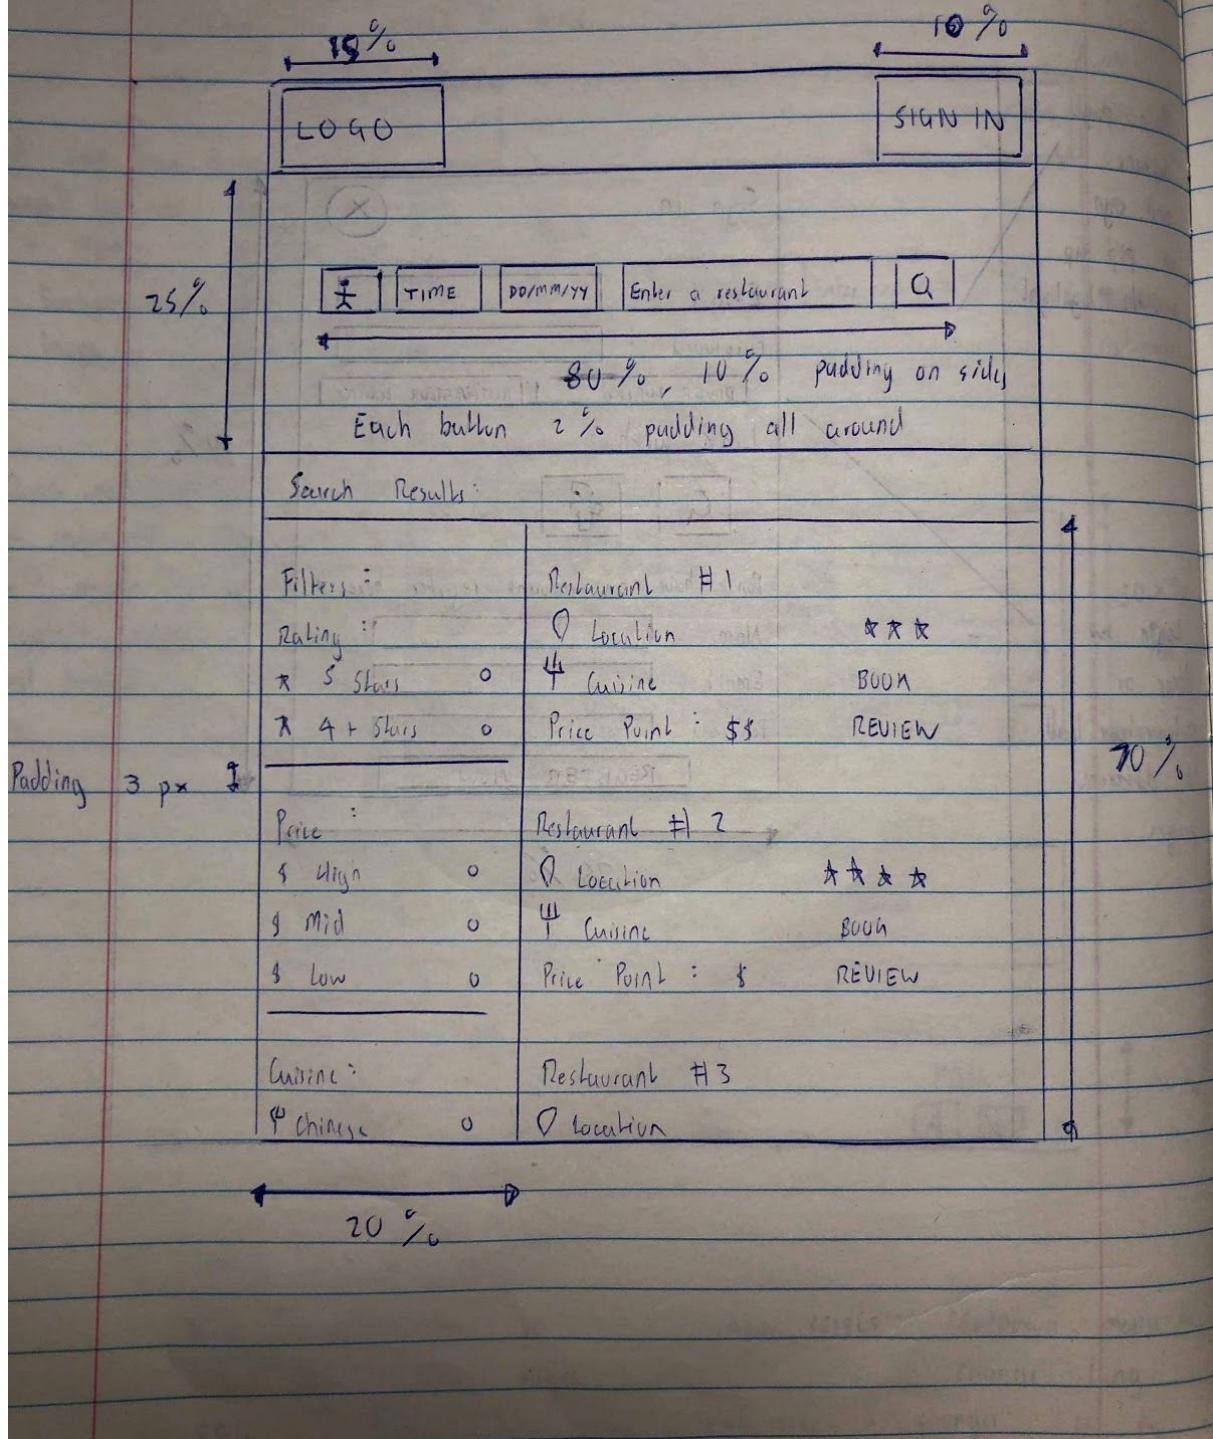 10%
LOGO
SIGN IN
25%
TIME
DD/MM/YY
Enter a restaurant
80%, 10% padding on sides
Each button 2% padding all around
Search Results:
Filters:
Rating:
5 Stars
4+ Stars
Padding 3 px
Price:
$ High
$ Mid
$ Low
Cuisine:
Chinese
20%
Restaurant #1
Location
Cuisine
BOOK
Price Point: $$
REVIEW
Restaurant #2
Location
Cuisine
BOOK
Price Point: $
REVIEW
Restaurant #3
Location
70%